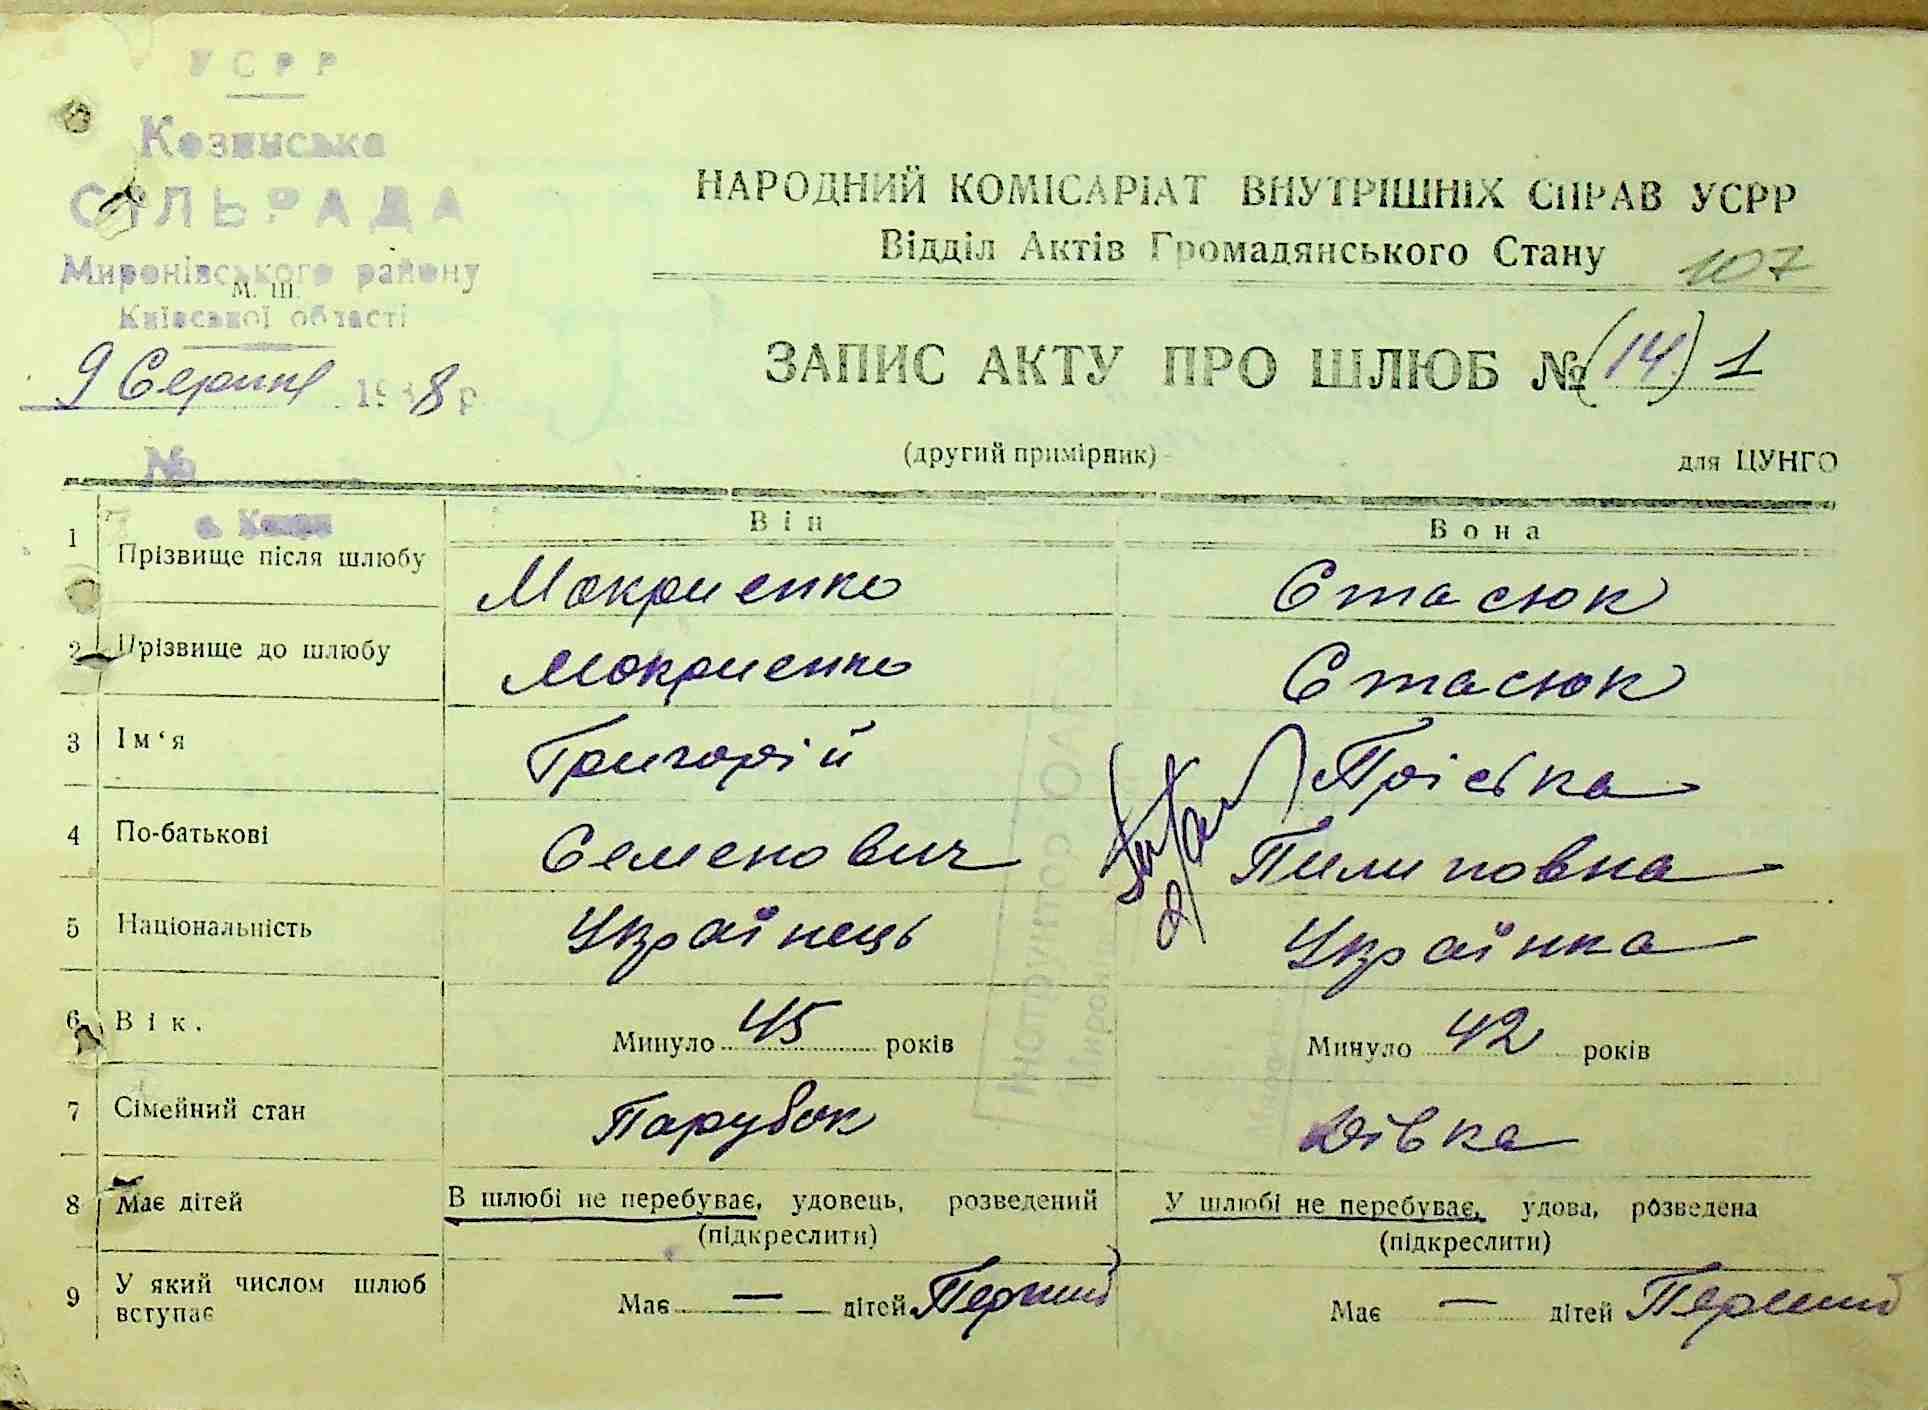 УСРР
Козинська
СІЛЬРАДА
Миронівського району
М. Ш.
Київської області
9 Серпня 1938 р
№
НАРОДНИЙ КОМІСАРІАТ ВНУТРІШНІХ СПРАВ УСРР
Відділ Актів Громадянського Стану
107
ЗАПИС АКТУ ПРО ШЛЮБ № (14) 1
(другий примірник)
для ЦУНГО
Він Вона
1 Прізвище після шлюбу Мокриенко Стасюк
2 Прізвище до шлюбу Мокриенко Стасюк
3 Ім‘я Григорій Пріська
4 По-батькові Семенович Пилиповна
5 Національність Українець Українка
6 Вік. Минуло 45 років Минуло 42 років
7 Сімейний стан Парубок Дівка
8 Має дітей В шлюбі не перебуває, удовець, розведений У шлюбі не перебуває, удова, розведена
(підкреслити) (підкреслити)
9 У який числом шлюб вступає Має — дітей Перший Має — дітей Перший